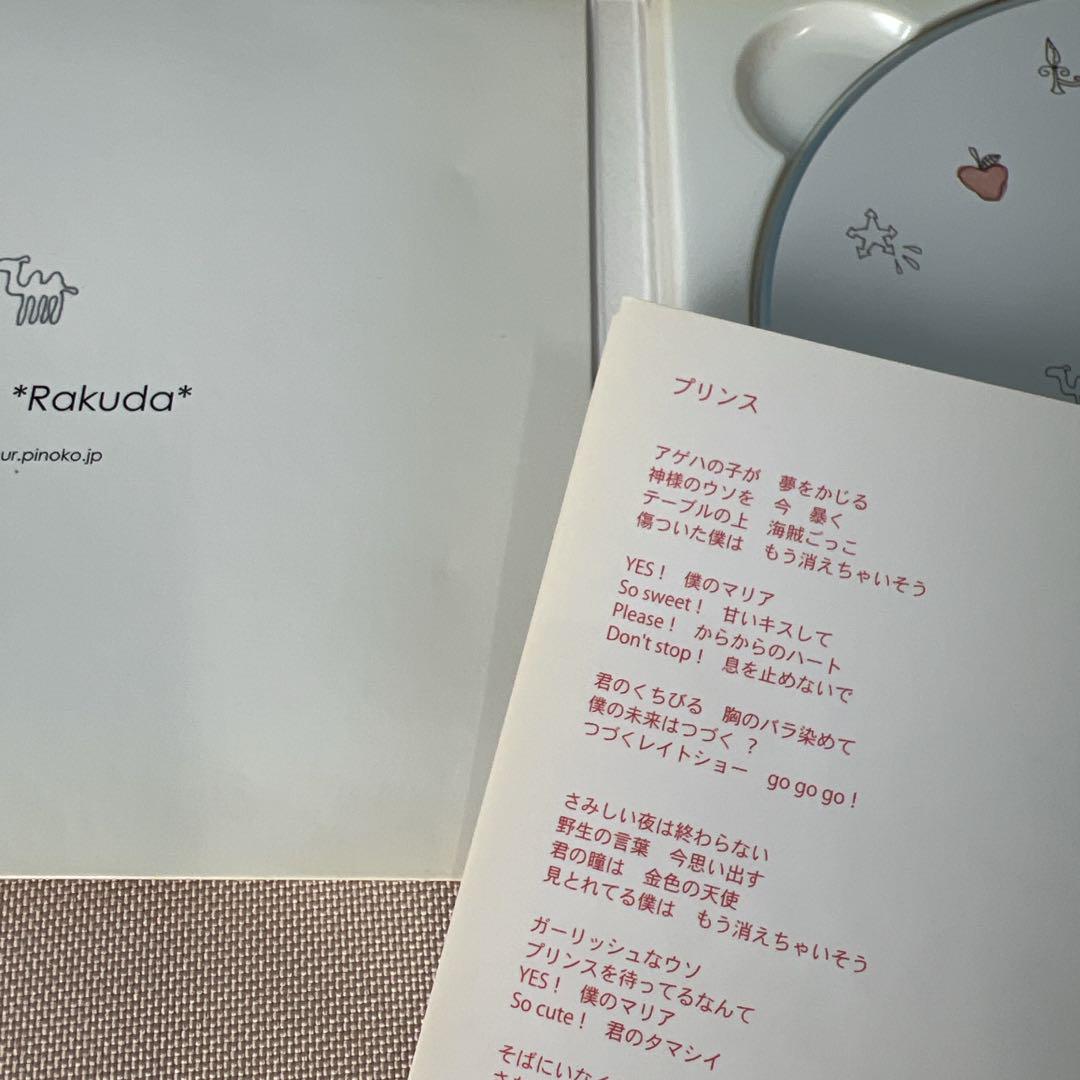 *Rakuda*
ur.pinoko.jp
プリンス
アゲハの子が　夢をかじる
神様のウソを　今　暴く
テーブルの上　海賊ごっこ
傷ついた僕は　もう消えちゃいそう
YES！　僕のマリア
So sweet！　甘いキスして
Please！　からからのハート
Don't stop！　息を止めないで
君のくちびる　胸のバラ染めて
僕の未来はつづく ？
つづくレイトショー　go go go！
さみしい夜は終わらない
野生の言葉　今思い出す
君の瞳は　金色の天使
見とれてる僕は　もう消えちゃいそう
ガーリッシュなウソ
プリンスを待ってるなんて
YES！　僕のマリア
So cute！　君のタマシイ
そばにいなく